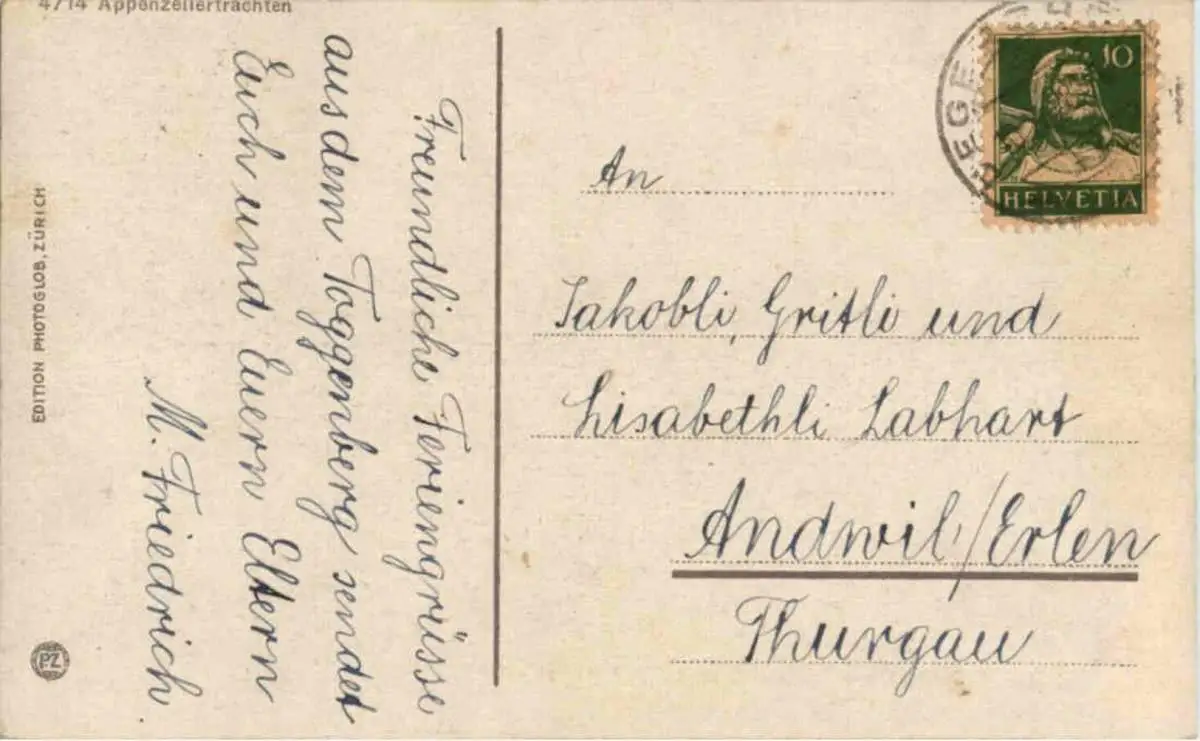 4714 Appenzellertrachten
Freundliche Feriengrüsse
aus dem Toggenberg sendet
Euch und Euern Eltern
M. Friedrich
EDITION PHOTOGLOB, ZÜRICH
PZ
10
HELVETIA
An
Jakobli, Gritli und
Lisabethli Labhart
Andwil/Erlen
Thurgau